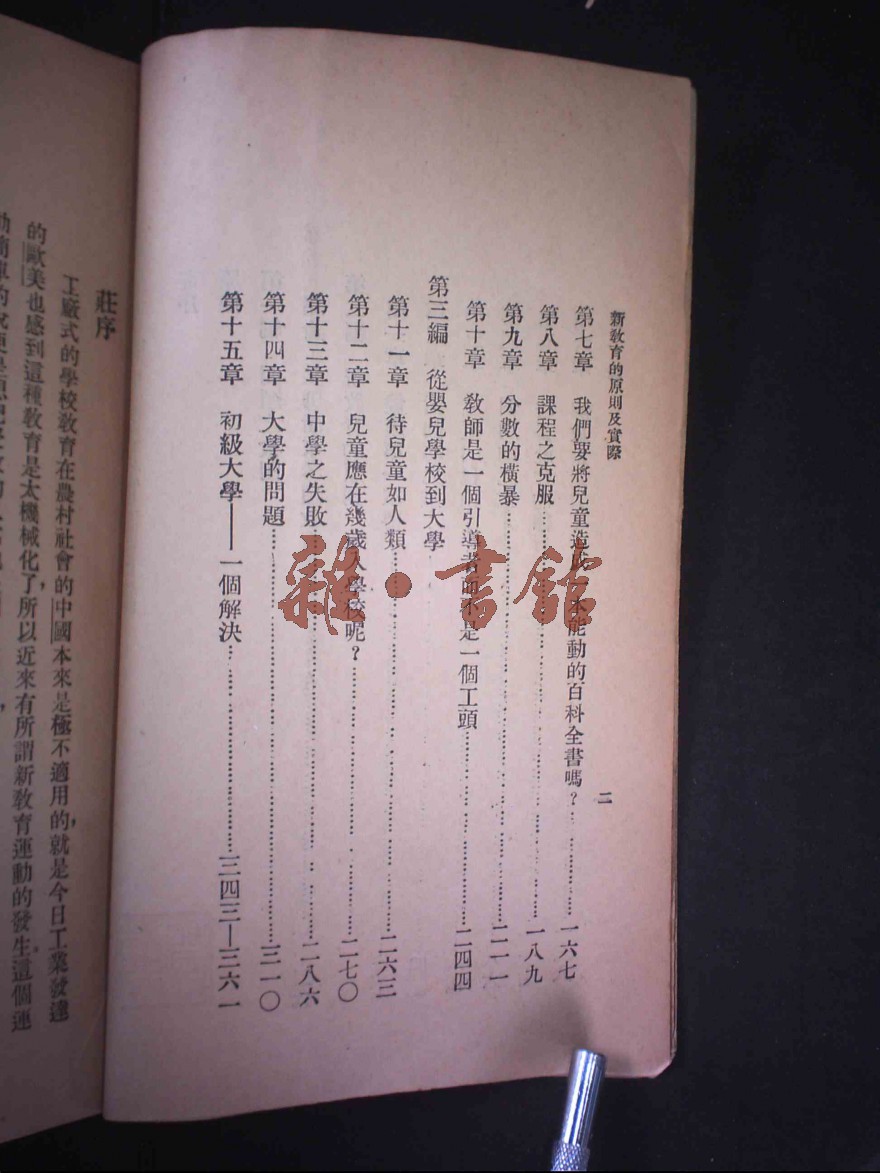 新教育的原則及實際
二
第七章　我們要將兒童造成一本能動的百科全書嗎？……一六七
第八章　課程之克服……一八九
第九章　分數的橫暴……二一一
第十章　教師是一個引導者而不是一個工頭……二四四
第三編　從嬰兒學校到大學
第十一章　待兒童如人類……二六三
第十二章　兒童應在幾歲入學校呢？……二七〇
第十三章　中學之失敗……二八六
第十四章　大學的問題……三一〇
第十五章　初級大學——一個解決……三四三—三六一
雜·書館
莊序
工廠式的學校教育在農村社會的中國本來是極不適用的，就是今日工業發達
的歐美也感到這種教育是太機械化了，所以近來有所謂新教育運動的發生。這個運